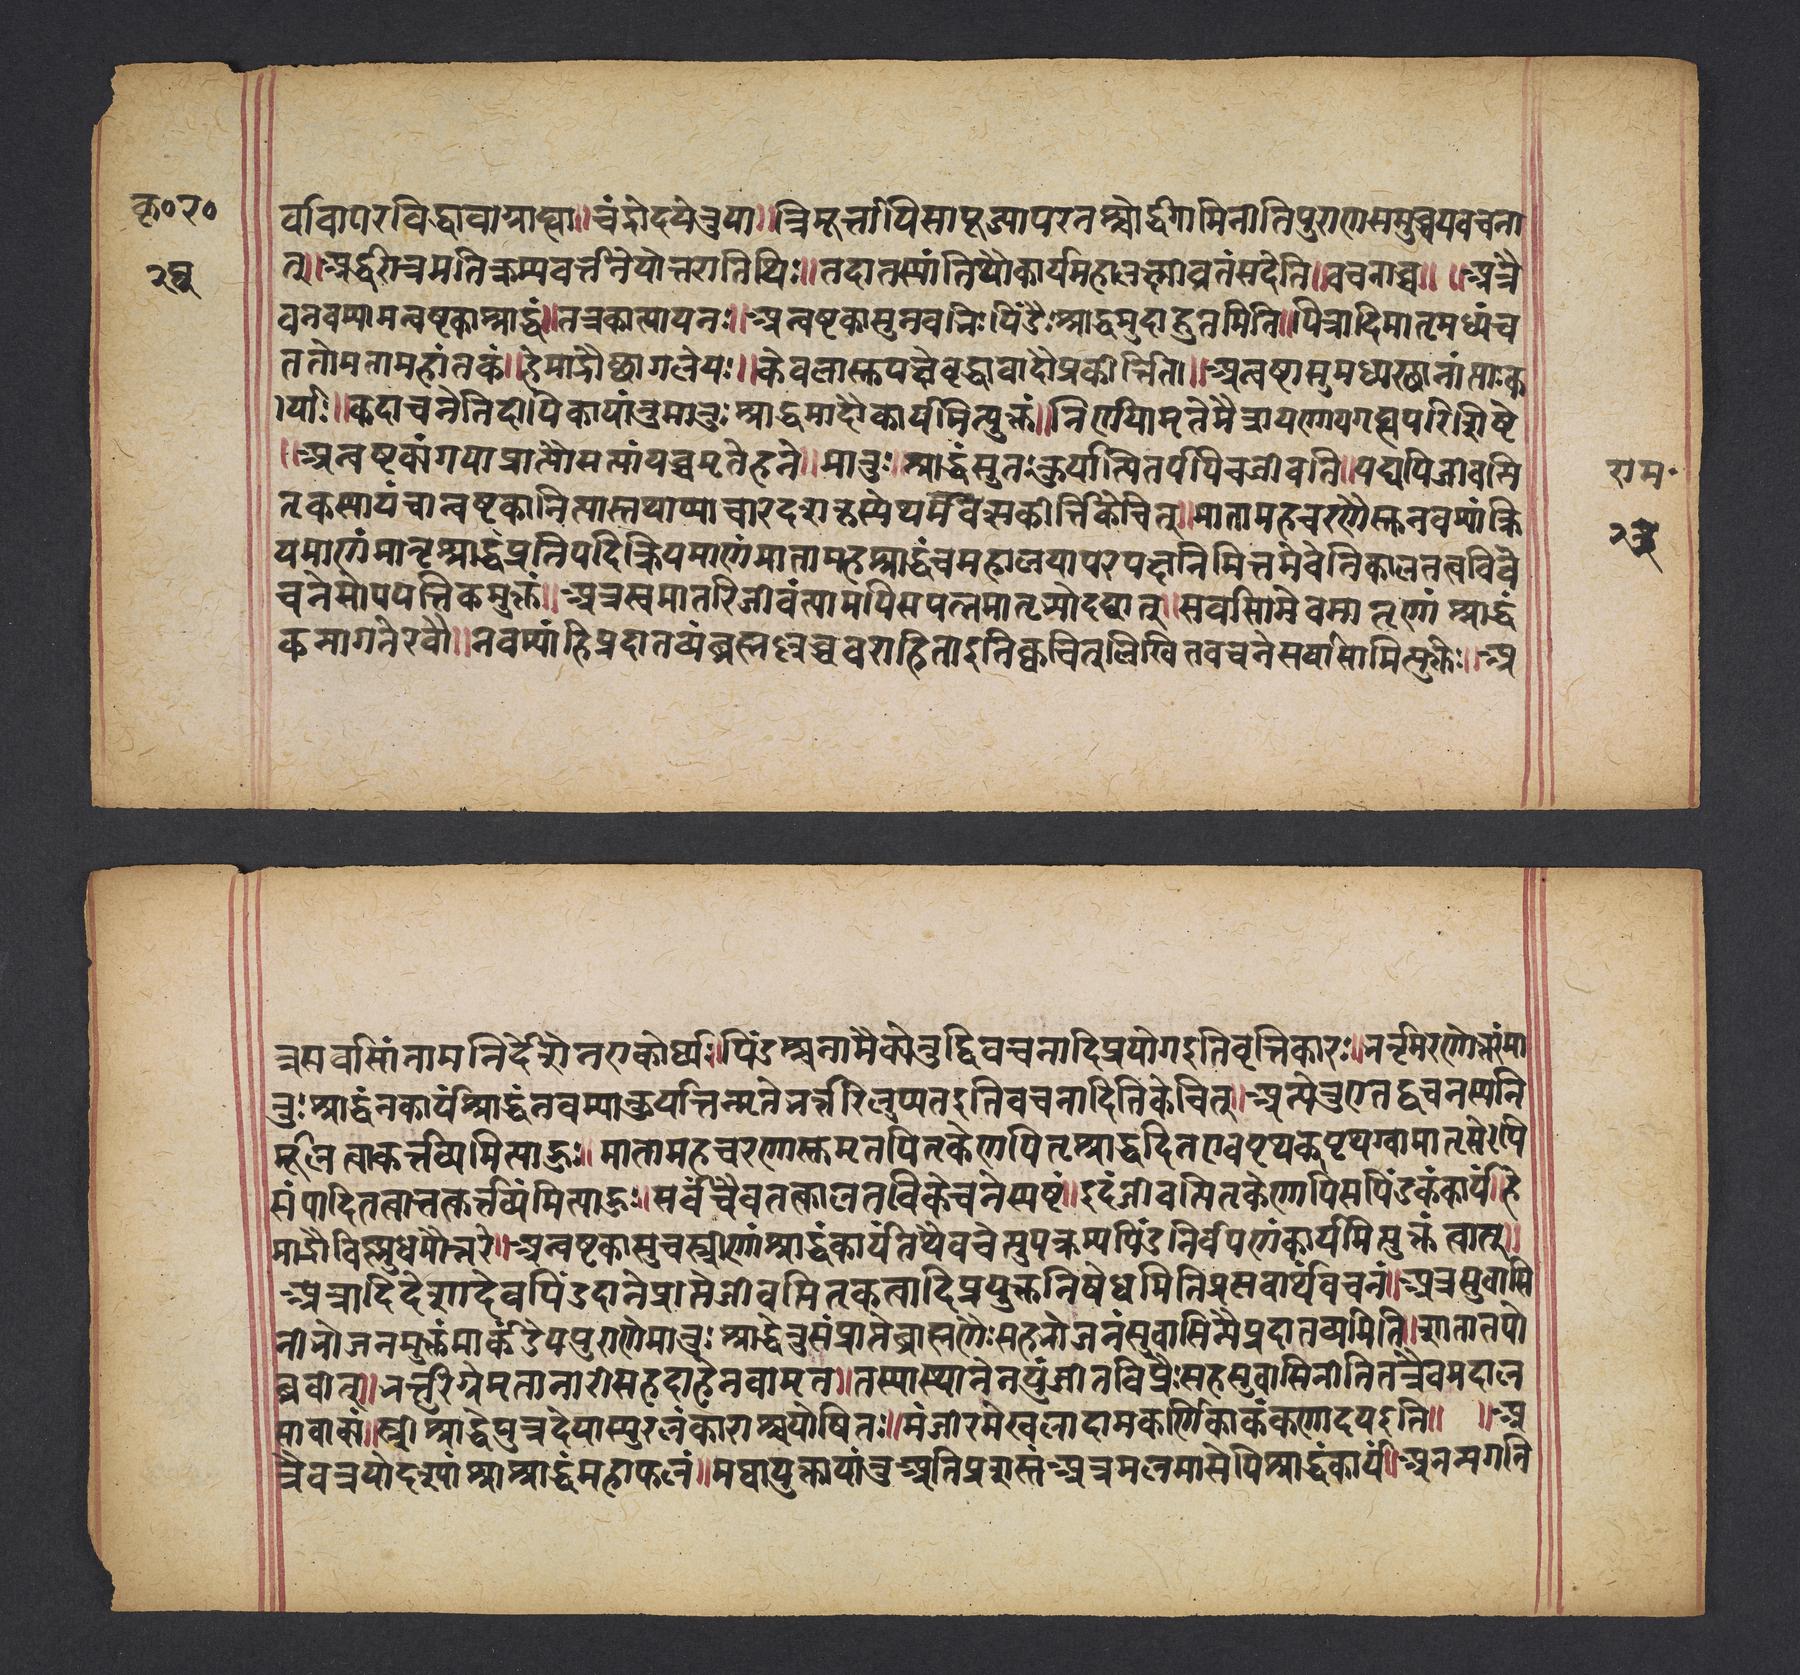 कृ०र०
२८
र्वावापरविद्धावाग्राह्या॥चंद्रोदयेनुपा॥त्रिमूर्त्तापिसापूज्यापरतश्चोर्द्धगामिनीतिपुराणसमुच्चयवचना
त्॥अर्द्धरात्रमतिक्रम्यवर्त्ततेयोत्तरातिथिः॥तदातस्यांतिथौकार्यमहालक्ष्मीव्रतंसदेति॥वचनाच्च॥ ॥अत्रै
वनवम्यामन्वष्टकाश्राद्धं॥तत्रकात्यायनः॥अन्वष्टकासुनवभिःपिंडैःश्राद्धमुदाहृतमिति॥पित्रादिमातृमध्यंच
ततोमतामहांतकं॥हेमाद्रौछागलेयः॥केवलास्तपक्षेवृद्धावादौप्रकीर्त्तिता॥अन्वष्टासुमध्यस्छानां
॥कदाचनेतिदीपिकायांतुमातुःश्राद्धमादौकार्यमित्युक्तं॥निर्णयामृतेमैत्रायणीयगृह्यपरिशिष्टे
॥अन्वष्टकांगयाप्राप्तौसत्यांयच्चमृतेहनि॥मातुःश्राद्धंसुतःकुर्यात्पितर्यपिचजीवति॥यद्यपिजीवत्पि
तृकस्यायंचान्वष्टकानित्यास्तथाप्याचारदशाछस्येयमेवंप्रकीर्त्तिकेचित्॥मातामहचरणैस्तनवम्यांक्रि
यमाणंमातृश्राद्धंप्रतिपदिक्रियमाणंमातामहश्राद्धंचमहालयापरपक्षनिमित्तमेवेतिकालतत्वविवे
चनेसोपपत्तिकमुक्तं॥अत्रस्वमातरिजीवंत्यामपिसपत्नमातृभ्योदद्यात्॥सर्वासामेवमातृणांश्राद्धं
कमागतेरवौ॥नवम्यांहिप्रदातव्यंब्रह्मलब्धवराहिताइतिक्वचित्लिखितवचनेसर्वासामित्युक्तेः॥अ
राम॰
२८
त्रसर्वासांनामनिर्देशेनएकोर्घ्यः॥पिंडश्चनामैक्येतुद्विवचनादिप्रयोगइतिवृत्तिकारः॥भर्तृमरणोत्तरंमा
तुःश्राद्धंनकार्यंश्राद्धंनवम्याकुर्यात्तन्मृतेभर्त्तरिलुप्यतइतिवचनादितिकेचित्॥अन्येतुएतद्वचनस्यनि
र्मूलत्वाकर्त्तव्यमित्याहुः॥मातामहचरणास्तमृतपितृकेणपितृश्राद्धदितएवपृथक्पृथग्वामातृसेरपि
संपादितत्वात्तत्कर्त्तव्यंमित्याहुः॥सर्वंचैवतत्कालतविवेचनेस्पष्टं॥इदंजीवत्पितृकेणापिसपिंडकंकार्यं॥हे
माद्रौविष्णुधर्मोत्तरे॥अन्वष्टकासुचस्त्रीणांश्राद्धंकार्यंतथैवचेत्युपक्रम्यपिंडनिर्वपणंकार्यमित्युक्तंत्वात्॥
अत्रादिदेशादेवपिंडदानेप्राप्तेजीवत्पितृकत्वादिप्रयुक्तनिषेधमितिप्रसवार्थवचनं॥अत्रसुवासि
नीभोजनमुक्तंमार्कंडेयपुराणेमातुःश्राद्धेतुसंप्राप्तेब्राह्मणैःसहभोजनंसुवासिन्यैप्रदातव्यमिति॥शातातपो
ब्रवीत्॥भर्त्तुरिग्रेमृतानारीसहदाहेनवामृता॥तस्यास्थानेनयुंजीतविप्रैःसहसुवासिनीतितत्रैवमदाल
सावाक्यं॥स्त्रीश्राद्धेपुत्रदेयास्पुरलंकाराश्चयोषितः॥मंजीरमेखलादामकर्णिकाकंकणादयइति॥ ॥अ
त्रैवत्रयोदश्यांश्राद्धंमहाफलं॥मघायुक्तायांतुअतिप्रशस्तंअत्रमलमासेपिश्राद्धंकार्यं॥अनन्यगति